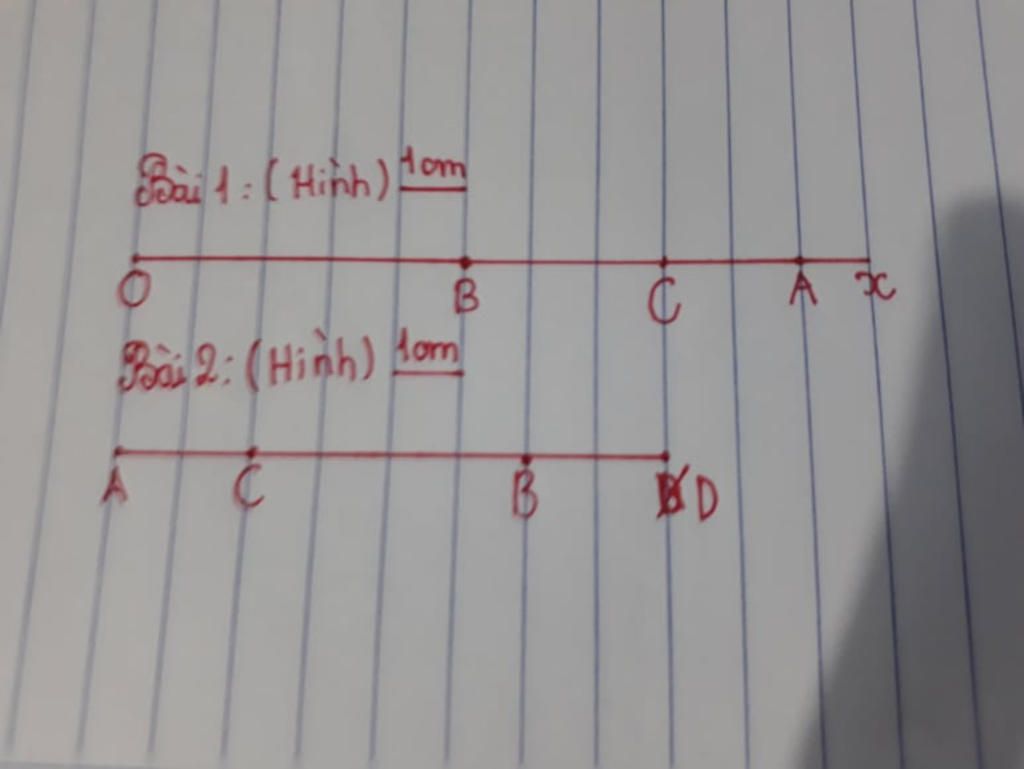 Bài 1: (Hình) 1cm
O B C A x
Bài 2: (Hình) 1cm
A C B D